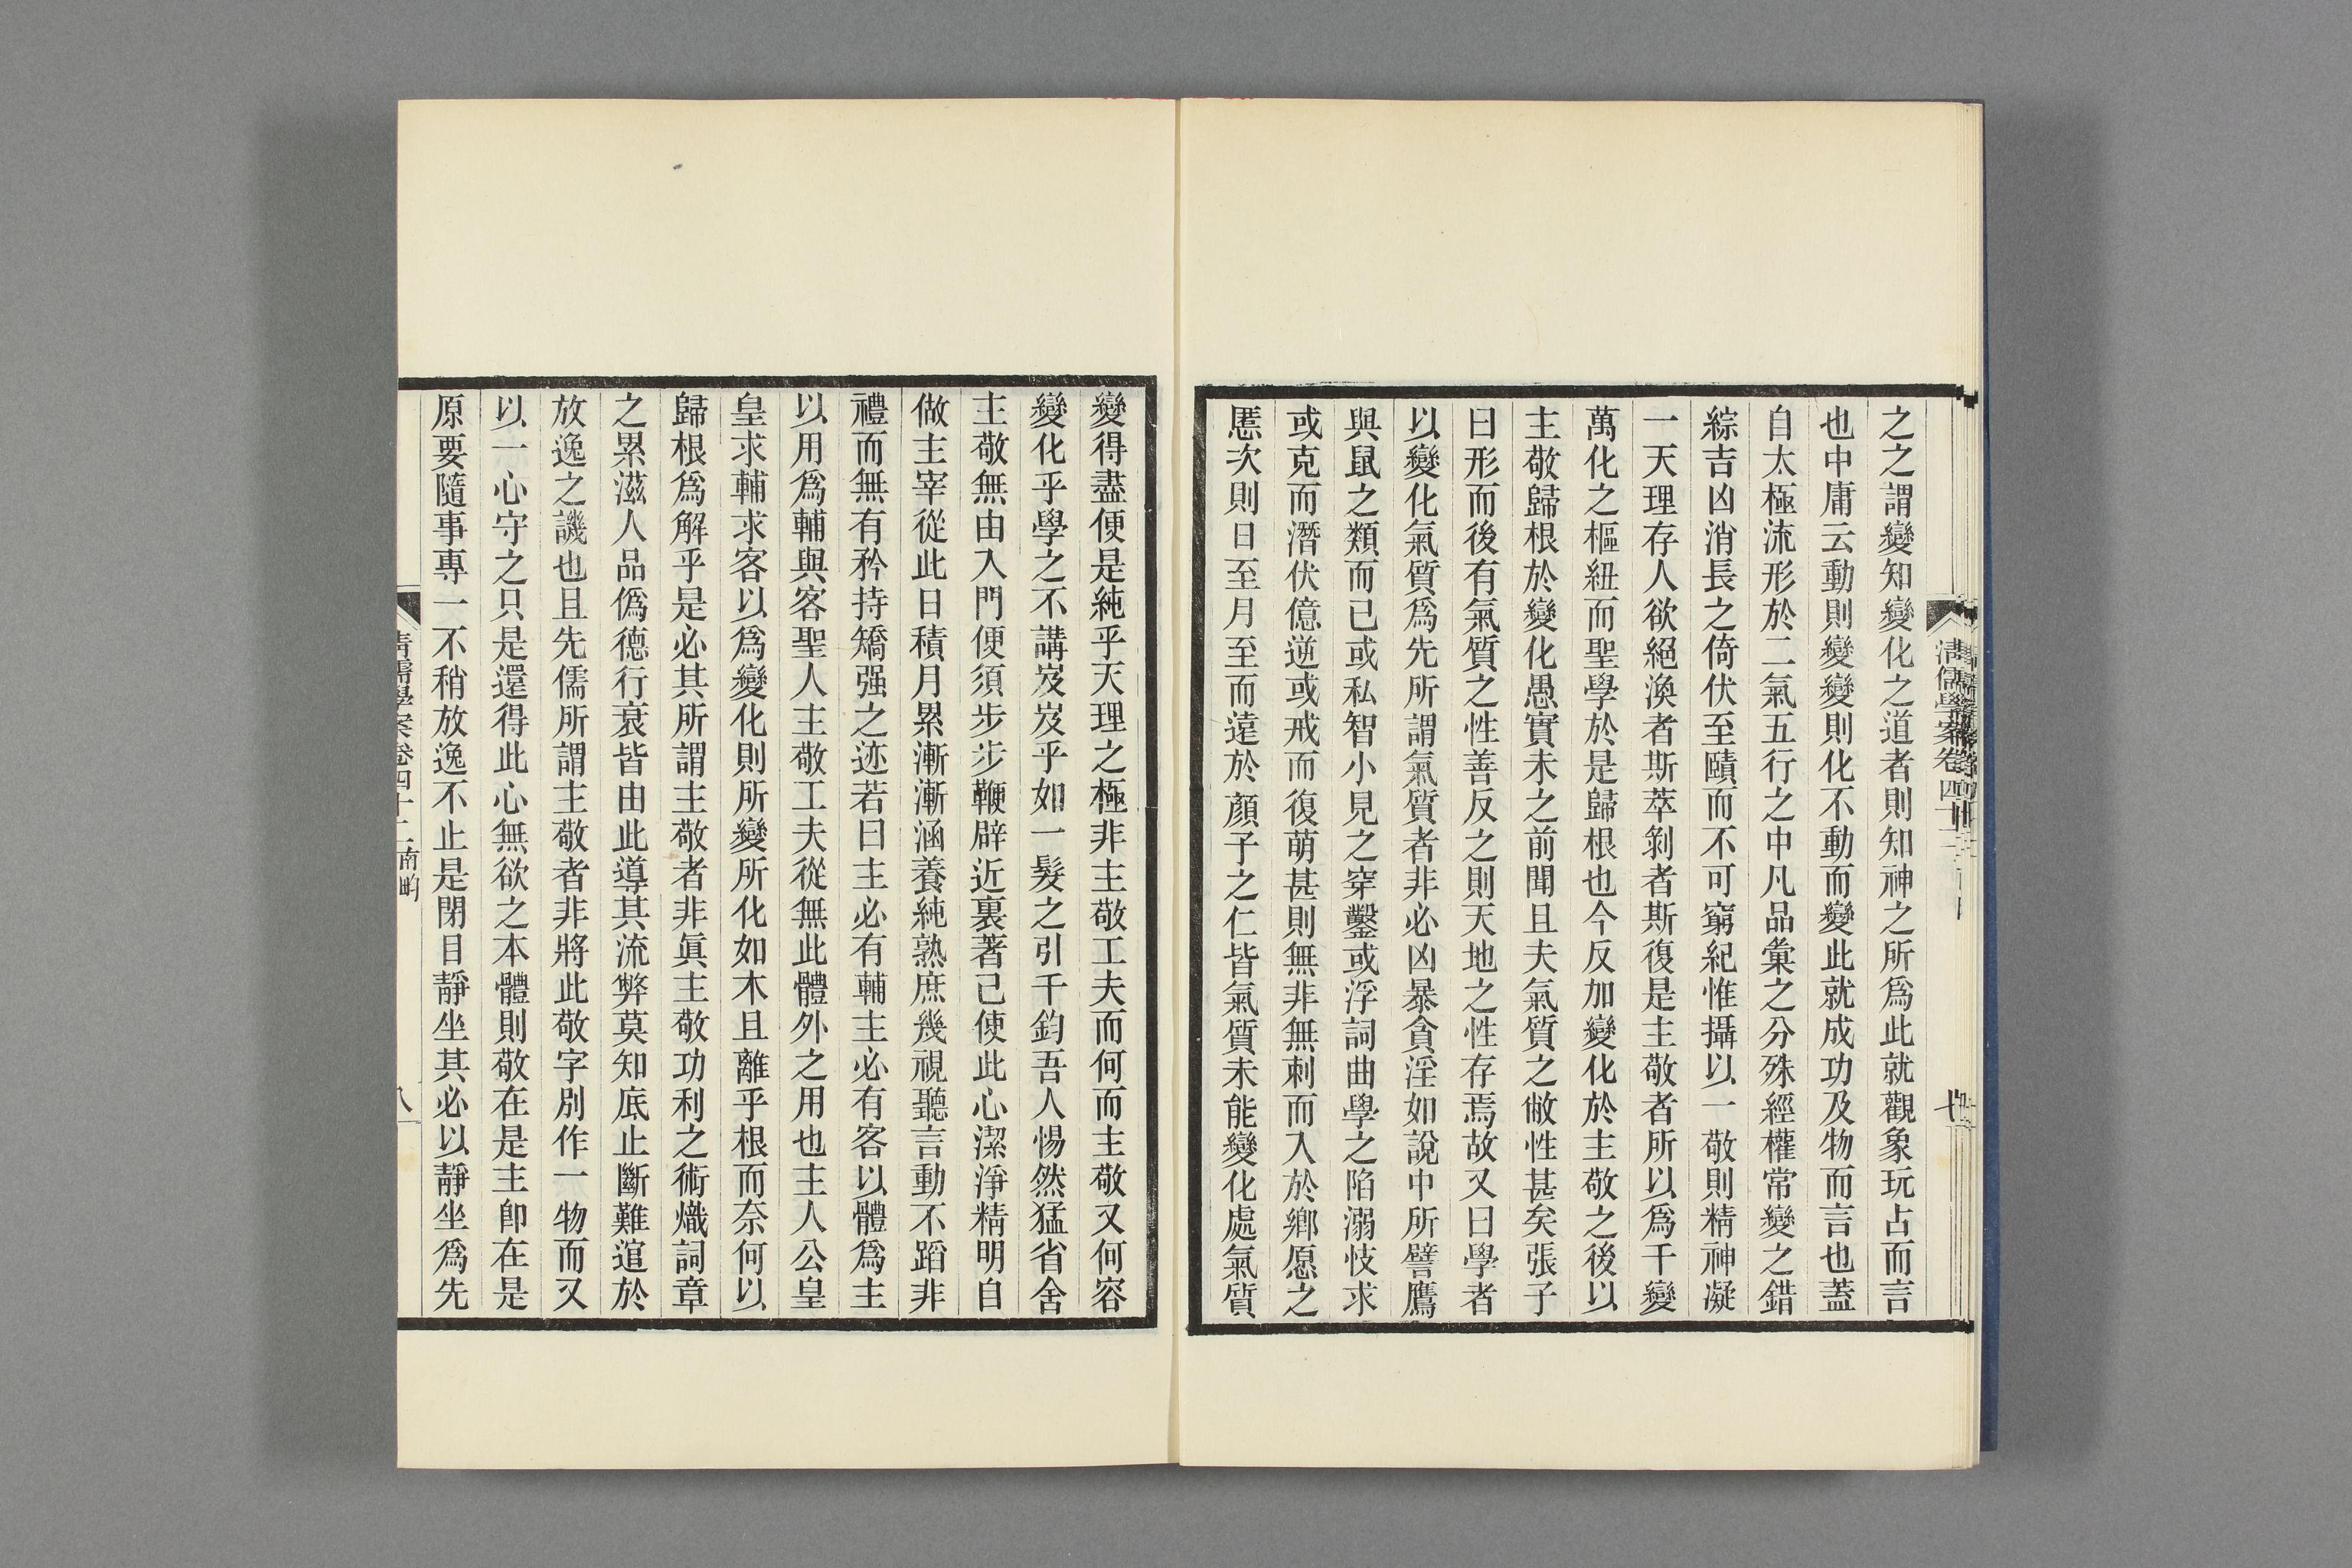 之之謂變知變化之道者則知神之所爲此就觀象玩占而言
也中庸云動則變變則化不動而變此就成功及物而言也蓋
自太極流形於二氣五行之中凡品彙之分殊經權常變之錯
綜吉凶消長之倚伏至賾而不可窮紀惟攝以一敬則精神凝
一天理存人欲絕渙者斯萃剝者斯復是主敬者所以爲千變
萬化之樞紐而聖學於是歸根也今反加變化於主敬之後以
主敬歸根於變化愚實未之前聞且夫氣質之敝性甚矣張子
曰形而後有氣質之性善反之則天地之性存焉故又曰學者
以變化氣質爲先所謂氣質者非必凶暴貪淫如說中所譬鷹
與鼠之類而已或私智小見之穿鑿或浮詞曲學之陷溺忮求
或克而潛伏億逆或戒而復萌甚則無非無刺而入於鄉愿之
慝次則日至月至而遠於顏子之仁皆氣質未能變化處氣質
變得盡便是純乎天理之極非主敬工夫而何而主敬又何容
變化乎學之不講岌岌乎如一髮之引千鈞吾人惕然猛省舍
主敬無由入門便須步步鞭辟近裏著己使此心潔淨精明自
做主宰從此日積月累漸漸涵養純熟庶幾視聽言動不蹈非
禮而無有矜持矯强之迹若曰主必有輔主必有客以體爲主
以用爲輔與客聖人主敬工夫從無此體外之用也主人公皇
皇求輔求客以爲變化則所變所化如木且離乎根而奈何以
歸根爲解乎是必其所謂主敬者非眞主敬功利之術熾詞章
之累滋人品僞德行衰皆由此導其流弊莫知底止斷難逭於
放逸之譏也且先儒所謂主敬者非將此敬字別作一物而又
以一心守之只是還得此心無欲之本體則敬在是主卽在是
原要隨事專一不稍放逸不止是閉目靜坐其必以靜坐爲先
清儒學案卷四十二 南畇
八